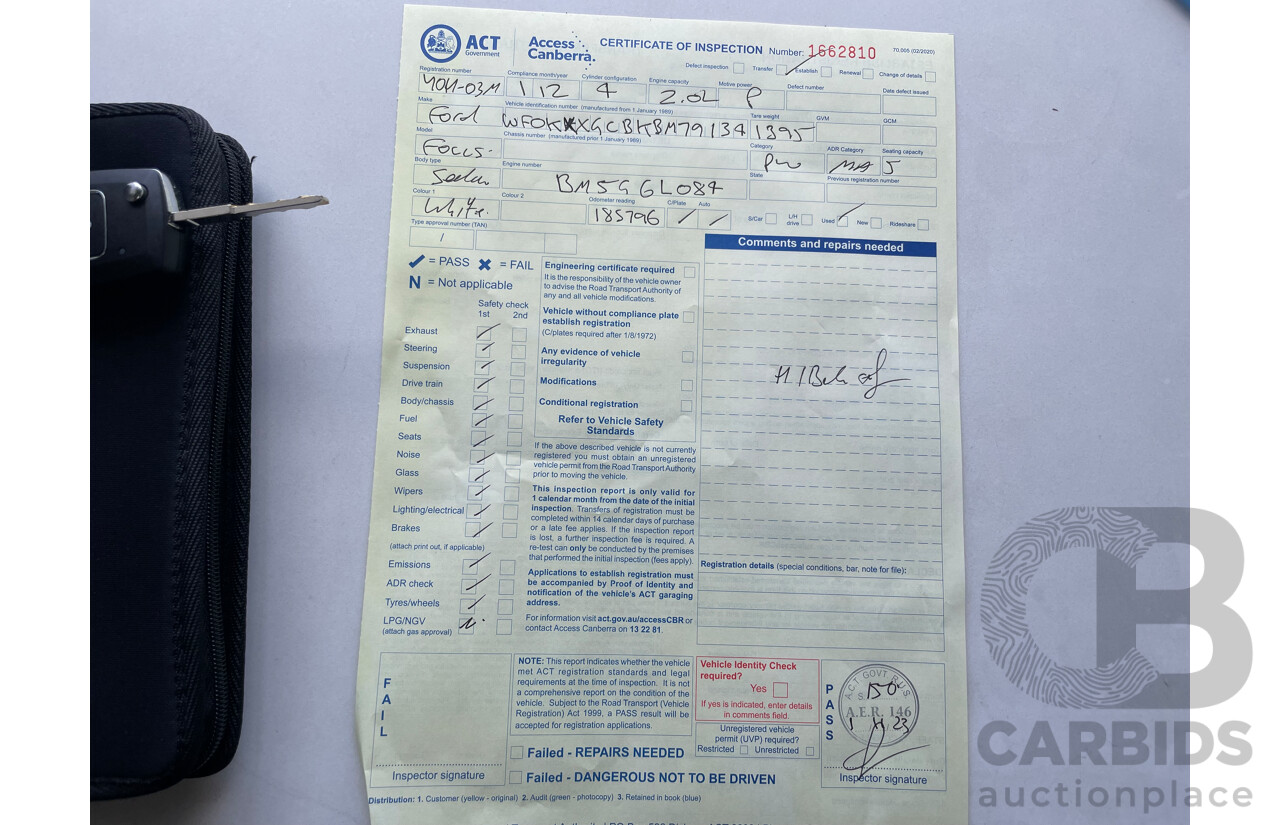 ACT Government
Access Canberra.
CERTIFICATE OF INSPECTION Number: 1662810 70.005 (02/2020)
Defect inspection Transfer Establish Renewal Change of details
Registration number Compliance month/year Cylinder configuration Engine capacity Motive power Defect number Date defect issued
1 12 4 2.0L P
Make Vehicle identification number (manufactured from 1 January 1989) Tare weight GVM GCM
Ford 1395
Model Chassis number (manufactured prior 1 January 1989) Category ADR Category Seating capacity
Focus. MA 5
Body type Engine number State Previous registration number
Sedan
Colour 1 Colour 2 Odometer reading C/Plate Auto
White. 185796
S/Car L/H drive Used New Rideshare
Type approval number (TAN)
= PASS = FAIL
N = Not applicable
Safety check
1st 2nd
Exhaust
Steering
Suspension
Drive train
Body/chassis
Fuel
Seats
Noise
Glass
Wipers
Lighting/electrical
Brakes
(attach print out, if applicable)
Emissions
ADR check
Tyres/wheels
LPG/NGV
(attach gas approval)
Engineering certificate required
It is the responsibility of the vehicle owner
to advise the Road Transport Authority of
any and all vehicle modifications.
Vehicle without compliance plate
establish registration
(C/plates required after 1/8/1972)
Any evidence of vehicle
irregularity
Modifications
Conditional registration
Refer to Vehicle Safety
Standards
If the above described vehicle is not currently
registered you must obtain an unregistered
vehicle permit from the Road Transport Authority
prior to moving the vehicle.
This inspection report is only valid for
1 calendar month from the date of the initial
inspection. Transfers of registration must be
completed within 14 calendar days of purchase
or a late fee applies. If the inspection report
is lost, a further inspection fee is required. A
re-test can only be conducted by the premises
that performed the initial inspection (fees apply).
Applications to establish registration must
be accompanied by Proof of Identity and
notification of the vehicle's ACT garaging
address.
For information visit act.gov.au/accessCBR or
contact Access Canberra on 13 22 81.
Comments and repairs needed
Registration details (special conditions, bar, note for file):
FAIL
Inspector signature
NOTE: This report indicates whether the vehicle
met ACT registration standards and legal
requirements at the time of inspection. It is not
a comprehensive report on the condition of the
vehicle. Subject to the Road Transport (Vehicle
Registration) Act 1999, a PASS result will be
accepted for registration applications.
Failed - REPAIRS NEEDED
Failed - DANGEROUS NOT TO BE DRIVEN
Vehicle Identity Check
required?
Yes
If yes is indicated, enter details
in comments field.
Unregistered vehicle
permit (UVP) required?
Restricted Unrestricted
PASS
A.E.R. 146
Inspector signature
Distribution: 1. Customer (yellow - original) 2. Audit (green - photocopy) 3. Retained in book (blue)
CARBIDS
auctionplace